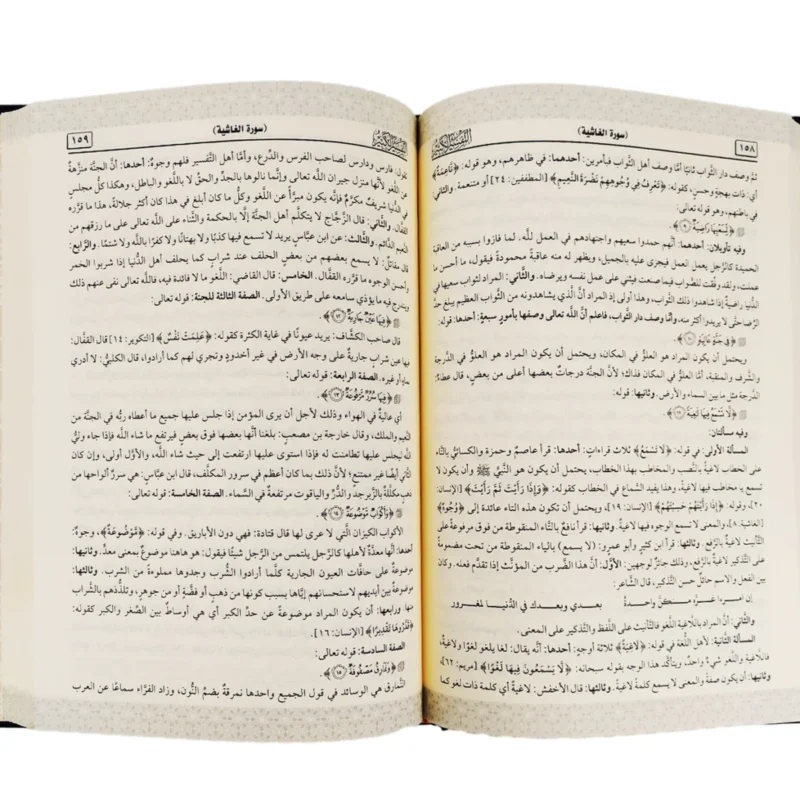 ١٥٨
(سورة الغاشية)
التفسير الكبير
ثمَّ وصف دار الثَّواب ثانيًا أمَّا وصف أهل الثَّواب فبأمرين: أحدهما: في ظاهرهم، وهو قوله: ﴿نَّاعِمَةٌ﴾
أي: ذات بهجةٍ وحسنٍ، كقوله: ﴿تَعْرِفُ فِي وُجُوهِهِمْ نَضْرَةَ النَّعِيمِ﴾ [المطففين: ٢٤] أو متنعمة. والثاني:
في باطنهم، وهو قوله تعالى:
﴿لِّسَعْيِهَا رَاضِيَةٌ ۝٩﴾.
وفيه تأويلان: أحدهما: أنَّهم حمدوا سعيهم واجتهادهم في العمل للَّه. لما فازوا بسببه من العاقبة
الحميدة كالرَّجل يعمل العمل فيجزى عليه بالجميل، ويظهر له منه عاقبةٌ محمودةٌ فيقول، ما أحسن ما
عملت، ولقد وفقت للصَّواب فيما صنعت فيثني على عمل نفسه ويرضاه. والثَّاني: المراد لثواب سعيها في
الدُّنيا راضيةٌ إذا شاهدوا ذلك الثَّواب، وهذا أولى إذ المراد أنَّ الَّذي يشاهدونه من الثَّواب العظيم يبلغ حدَّ
الرِّضا حتَّى لا يريدوا أكثر منه، وأمَّا وصف دار الثَّواب، فاعلم أنَّ اللَّه تعالى وصفها بأمورٍ سبعةٍ: أحدها: قوله:
﴿فِي جَنَّةٍ عَالِيَةٍ ۝١٠﴾.
ويحتمل أن يكون المراد هو العلوُّ في المكان، ويحتمل أن يكون المراد هو العلوُّ في الدَّرجة
والشَّرف والمنقبة، أمَّا العلوُّ في المكان فذاك؛ لأنَّ الجنَّة درجاتٌ بعضها أعلى من بعضٍ، قال عطاءٌ:
الدَّرجة مثل ما بين السماء والأرض. وثانيها: قوله:
﴿لَّا تَسْمَعُ فِيهَا لَاغِيَةً ۝١١﴾.
وفيه مسألتان:
المسألة الأولى: في قوله: ﴿لَّا تَسْمَعُ﴾ ثلاث قراءاتٍ: أحدها: قرأ عاصمٌ وحمزة والكسائيُّ بالتَّاء
على الخطاب لاغيةً بالنَّصب والمخاطب بهذا الخطاب، يحتمل أن يكون هو النَّبيُّ ﷺ وأن يكون لا
تسمع يا مخاطب فيها لاغيةً، وهذا يفيد السَّماع في الخطاب كقوله: ﴿وَإِذَا رَأَيْتَ ثَمَّ رَأَيْتَ﴾ [الإنسان:
٢٠]، وقوله: ﴿إِذَا رَأَيْتَهُمْ حَسِبْتَهُمْ﴾ [الإنسان: ١٩]، ويحتمل أن تكون هذه التاء عائدة إلى ﴿وُجُوهٌ﴾
[الغاشية: ٨]، والمعنى لا تسمع الوجوه فيها لاغيةً. وثانيها: قرأ نافعٌ بالتَّاء المنقوطة من فوق مرفوعةً على
التَّأنيث لاغيةٌ بالرَّفع. وثالثها: قرأ ابن كثيرٍ وأبو عمرٍو: (لا يسمع) بالياء المنقوطة من تحت مضمومةً
على التَّذكير لاغيةٌ بالرَّفع، وذلك جائزٌ لوجهين: الأوَّل: أنَّ هذا الضَّرب من المؤنَّث إذا تقدَّم فعله. وكان
بين الفعل والاسم حائلٌ حسن التَّذكير، قال الشَّاعر:
إن امرءا غــرَّه منكــنَّ واحــدةٌ بعــدي وبعــدك في الدُّنيــا لمغــرور
والثَّاني: أنَّ المراد باللَّاغية اللَّغو فالتَّأنيث على اللَّفظ والتَّذكير على المعنى.
المسألة الثانية: لأهل اللُّغة في قوله: ﴿لَاغِيَةً﴾ ثلاثة أوجهٍ: أحدها: أنَّه يقال: لغا يلغو لغوًا ولاغيةً،
فاللَّاغية واللَّغو شيءٌ واحدٌ، ويتأكَّد هذا الوجه بقوله سبحانه: ﴿لَّا يَسْمَعُونَ فِيهَا لَغْوًا﴾ [مريم: ٦٢]،
وثانيها: أن يكون صفة والمعنى لا يسمع كلمةً لاغيةً. وثالثها: قال الأخفش: لاغيةً أي كلمة ذات لغو كما
١٥٩
(سورة الغاشية)
التفسير الكبير
تقول: فارس ودارس لصاحب الفرس والدِّرع، وأمَّا أهل التَّفسير فلهم وجوهٌ: أحدها: أنَّ الجنَّة منزَّهةٌ
عن اللَّغو لأنَّها منزل جيران اللَّه تعالى وإنَّما نالوها بالجدِّ والحقِّ لا باللَّغو والباطل، وهكذا كلُّ مجلسٍ
في الدُّنيا شريفٌ مكرَّمٌ فإنَّه يكون مبرَّأً عن اللَّغو وكلُّ ما كان أبلغ في هذا كان أكثر جلالةً، هذا ما قرَّره
القفَّال. والثَّاني: قال الزَّجَّاج لا يتكلَّم أهل الجنَّة إلَّا بالحكمة والثَّناء على اللَّه تعالى على ما رزقهم من
النَّعيم الدَّائم. والثَّالث: عن ابن عبَّاسٍ يريد لا تسمع فيها كذبًا ولا بهتانًا ولا كفرًا باللَّه ولا شتمًا. والرَّابع:
قال مقاتلٌ: لا يسمع بعضهم من بعضٍ الحلف عند شرابٍ كما يحلف أهل الدُّنيا إذا شربوا الخمر
وأحسن الوجوه ما قرَّره القفَّال. الخامس: قال القاضي: اللَّغو ما لا فائدة فيه، فاللَّه تعالى نفى عنهم ذلك
ويندرج فيه ما يؤذي سامعه على طريق الأولى. الصفة الثالثة للجنة: قوله تعالى:
﴿فِيهَا عَيْنٌ جَارِيَةٌ ۝١٢﴾.
قال صاحب الكشَّاف: يريد عيونًا في غاية الكثرة كقوله: ﴿عَلِمَتْ نَفْسٌ﴾ [التكوير: ١٤] قال القفَّال:
فيها عين شرابٍ جاريةٌ على وجه الأرض في غير أخدودٍ وتجري لهم كما أرادوا، قال الكلبيُّ: لا أدري
بماءٍ أو غيره. الصفة الرابعة: قوله تعالى:
﴿فِيهَا سُرُرٌ مَّرْفُوعَةٌ ۝١٣﴾.
أي عاليةٌ في الهواء وذلك لأجل أن يرى المؤمن إذا جلس عليها جميع ما أعطاه ربُّه في الجنَّة من
النَّعيم والملك، وقال خارجة بن مصعبٍ: بلغنا أنَّها بعضها فوق بعضٍ فيرتفع ما شاء اللَّه فإذا جاء وليُّ
اللَّه ليجلس عليها تطامنت له فإذا استوى عليها ارتفعت إلى حيث شاء اللَّه، والأوَّل أولى، وإن كان
الثَّاني أيضًا غير ممتنعٍ؛ لأنَّ ذلك بما كان أعظم في سرور المكلَّف، قال ابن عبَّاسٍ: هي سررٌ ألواحها من
ذهبٍ مكلَّلةٌ بالزَّبرجد والدُّرِّ والياقوت مرتفعةٌ في السَّماء. الصفة الخامسة: قوله تعالى:
﴿وَأَكْوَابٌ مَّوْضُوعَةٌ ۝١٤﴾.
الأكواب الكيزان الَّتي لا عرى لها قال قتادة: فهي دون الأباريق. وفي قوله: ﴿مَّوْضُوعَةٌ﴾، وجوهٌ:
أحدها: أنَّها معدَّةٌ لأهلها كالرَّجل يلتمس من الرَّجل شيئًا فيقول: هو هاهنا موضوعٌ بمعنى معدٌّ. وثانيها:
موضوعةٌ على حافَّات العيون الجارية كلَّما أرادوا الشُّرب وجدوها مملوءةً من الشرب. وثالثها:
موضوعةٌ بين أيديهم لاستحسانهم إيَّاها بسبب كونها من ذهبٍ أو فضَّةٍ أو من جوهرٍ، وتلذُّذهم بالشَّراب
منها ورابعها: أن يكون المراد موضوعة عن حدِّ الكبر أي هي أوساطٌ بين الصِّغر والكبر كقوله:
﴿قَدَّرُوهَا تَقْدِيرًا﴾ [الإنسان: ١٦].
الصفة السادسة: قوله تعالى:
﴿وَنَمَارِقُ مَصْفُوفَةٌ ۝١٥﴾.
النَّمارق هي الوسائد في قول الجميع واحدها نمرقةٌ بضمِّ النُّون، وزاد الفرَّاء سماعًا عن العرب